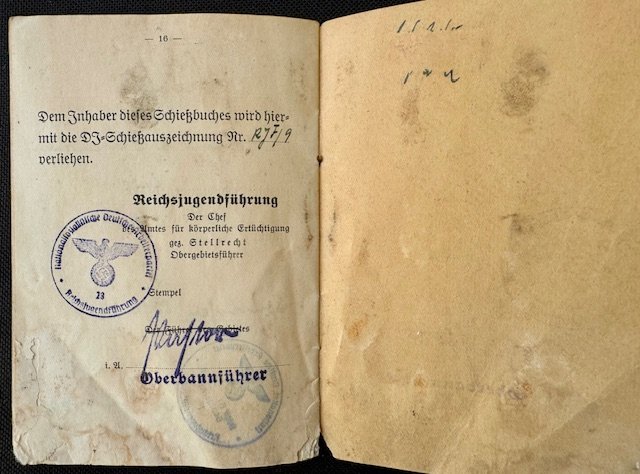 — 16 —
Dem Inhaber dieses Schießbuches wird hier-
mit die DJ-Schießauszeichnung Nr. RJF/9
verliehen.
Reichsjugendführung
Der Chef
Amtes für körperliche Ertüchtigung
gez. Stellrecht
Obergebietsführer
Nationalsozialistische Deutsche Arbeiterpartei
23
Reichsjugendführung
Stempel
Der Führer des Gebietes
i. A.
Oberbannführer